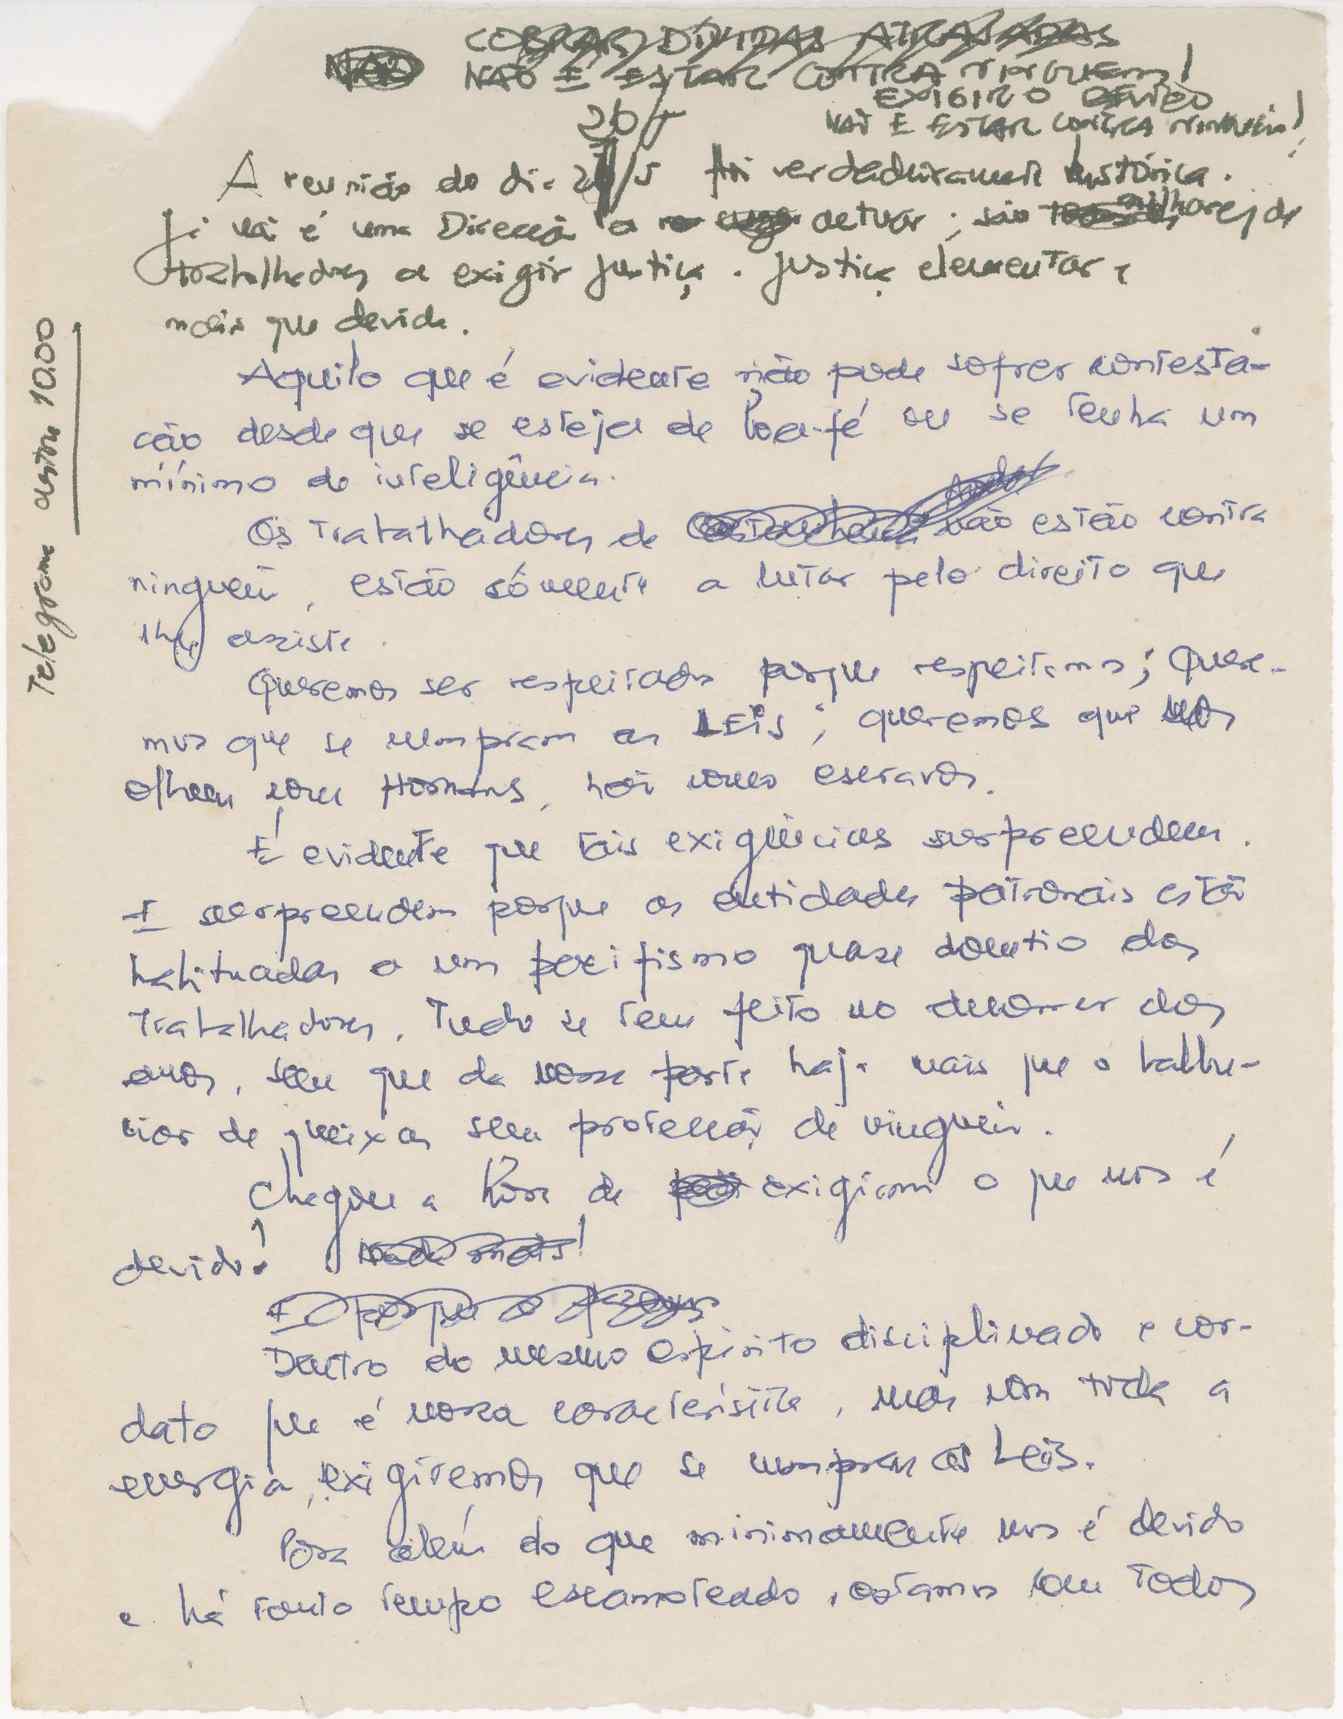 COBRAR DÍVIDAS ATRASADAS
NÃO É ESTAR CONTRA NINGUEM!
EXIGIR O DEVIDO
NÃO É ESTAR CONTRA NINGUEM!
26/5
A reunião do dia 26/5 foi verdadeiramente histórica.
Já não é uma Direcção a actuar; são milhares de
trabalhadores a exigir justiça. Justiça elementar e
mais que devida.
Telegrama antes 10.00
Aquilo que é evidente não pode sofrer contesta-
ção desde que se esteja de boa-fé ou se tenha um
mínimo de inteligência.
Os trabalhadores de não estão contra
ninguém, estão sómente a lutar pelo direito que
lhes assiste.
Queremos ser respeitados porque respeitamos; Quere-
mos que se cumpram as LEIS; queremos que nos
olhem como Homens, não como escravos.
É evidente que tais exigências surpreendem.
E surpreendem porque as entidades patronais estão
habituadas a um pacifismo quase doentio dos
trabalhadores. Tudo se tem feito no decorrer dos
anos, sem que da nossa parte haja mais que o balbu-
ciar de queixas sem protecção de ninguém.
Chegou a hora de exigirmos o que nos é
devido! nada mais!
Dentro do mesmo espírito disciplinado e cor-
dato que é nossa característica, mas com toda a
energia, exigiremos que se cumpram as Leis.
Para além do que minimamente nos é devido
e há tanto tempo escamoteado, estamos com todos